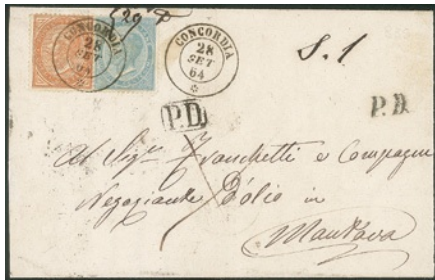 CONCORDIA
28
SET
64
CONCORDIA
28
SET
64
S. 1
P.D.
P.D.
Al Sig.r Franchetti e Compagni
Negoziante d'olio in
Mantova